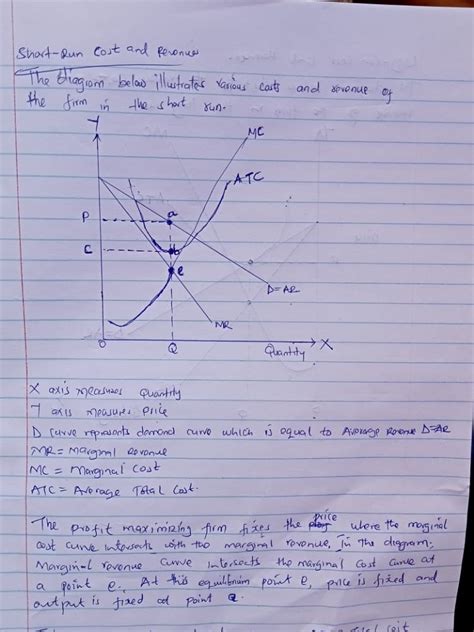 Short-Run Cost and Revenue
The diagram below illustrates various costs and revenue of
the firm in the short run.
Y
MC
ATC
P
a
C
b
e
D=AR
MR
O
Q
Quantity
X
X axis measures Quantity
Y axis measures Price
D curve represents demand curve which is equal to Average Revenue D=AR
MR = Marginal Revenue
MC = Marginal Cost
ATC = Average Total Cost.
The profit maximizing firm fixes the price where the marginal
cost curve intersects with the marginal revenue. In the diagram,
Marginal revenue curve intersects the marginal cost curve at
a point e. At this equilibrium point e, price is fixed and
output is fixed at point Q.